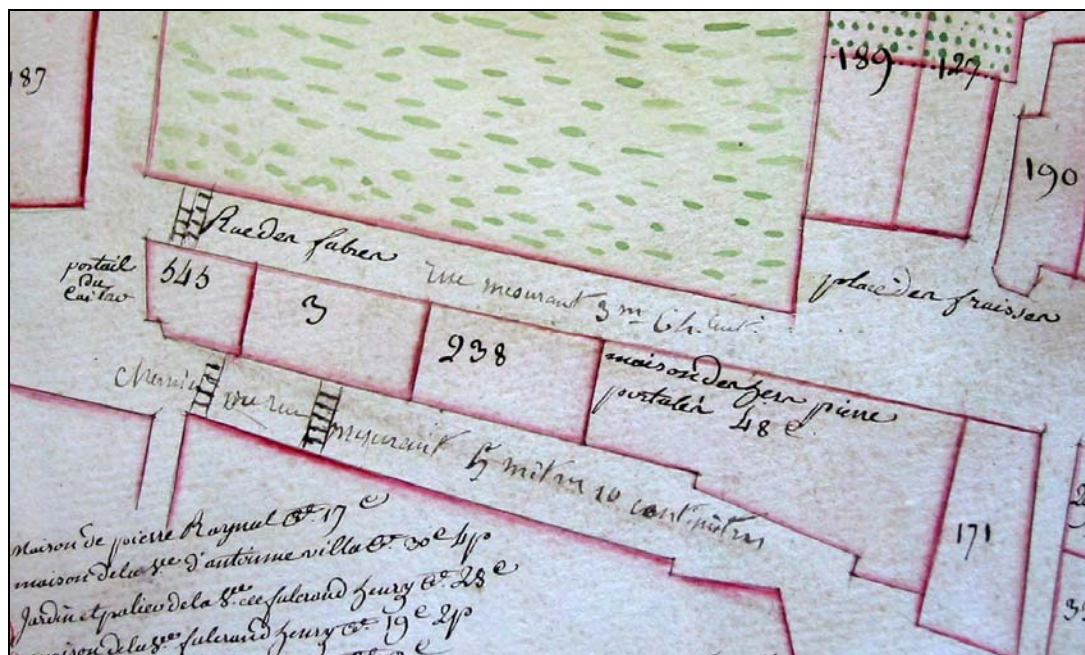 187
189
127
190
Rue des fabres
portail
du
543
3
rue mesurant 3 m
place des fraisses
238
maison des hers pierre
portalés 48 e
chemin ou rue mesurant 5 mètres 10 centimètres
171
maison de pierre Raynal Ct. 17 e
maison de la Ste d'antoinne villa Ct. 30 e 4p
Jardin et patieu de la Ste de fulcrand henry Ct. 28 e
maison de la Ste fulcrand henry Ct. 19 e 2p